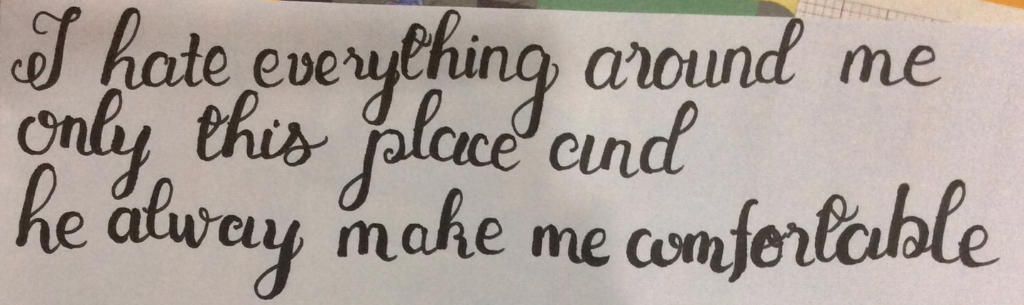 I hate everything around me
only this place and
he alway make me comfortable